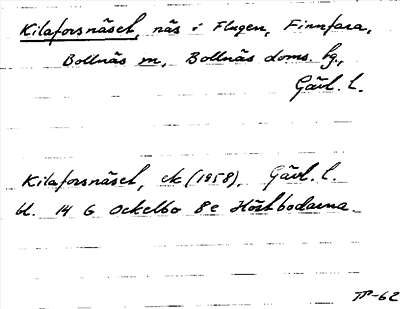 Kilaforsnäset, näs i Flugen, Finnfara,
Bollnäs m, Bollnäs doms. hg.,
Gävl. l.
Kilaforsnäset, ek (1958). Gävl. l.
bl. 14 G Ockelbo 8e Höstbodarna
TP-62